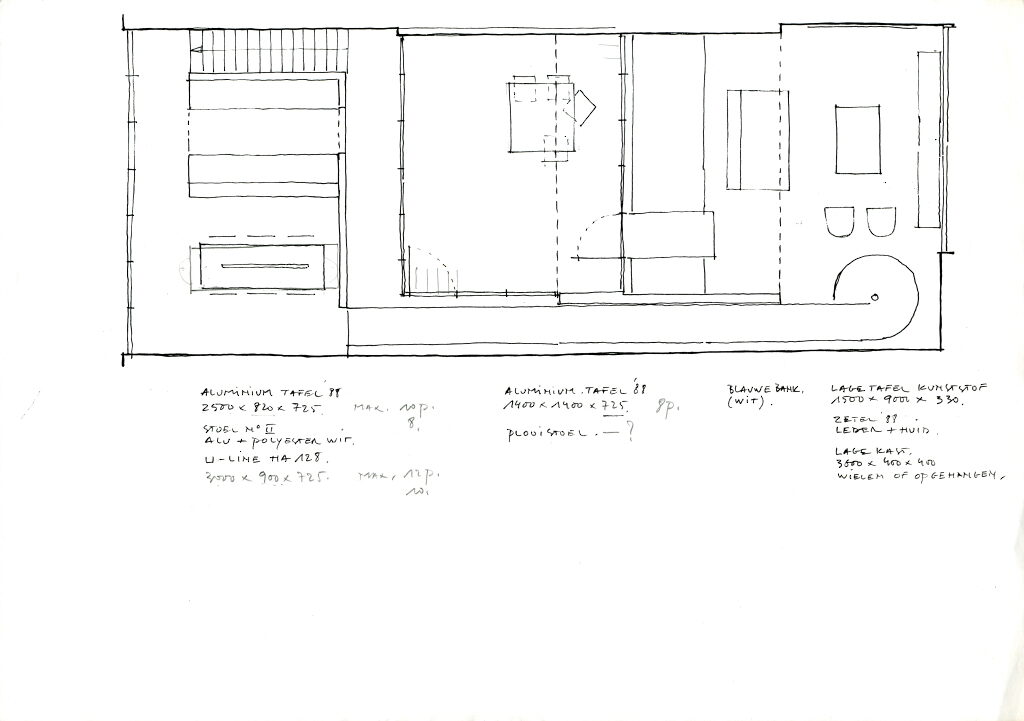 ALUMINIUM TAFEL '88
2500 x 820 x 725. MAX. 10 p.
8.
STOEL N° II
ALU + POLYESTER WIT.
U-LINE HA 128.
3000 x 900 x 725. MAX. 12 p.
10.
ALUMINIUM TAFEL '88
1400 x 1400 x 725. 8p.
PLOOISTOEL. — ?
BLAUWE BANK.
(WIT).
LAGE TAFEL KUNSTSTOF
1500 x 900 x 330.
ZETEL '88
LEDER + HUID.
LAGE KAST.
3600 x 400 x 400
WIELEN OF OPGEHANGEN.